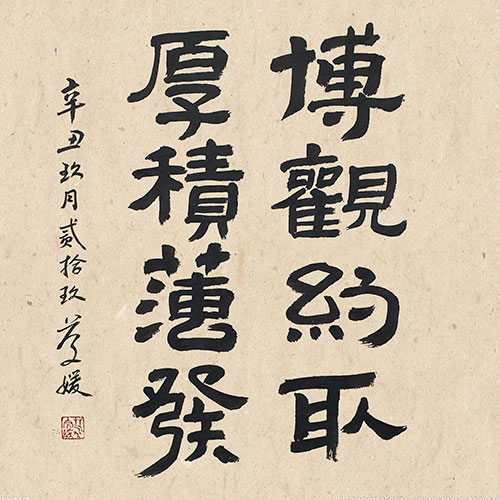 博觀約取
厚積薄發
辛丑玖月貳拾玖
媛